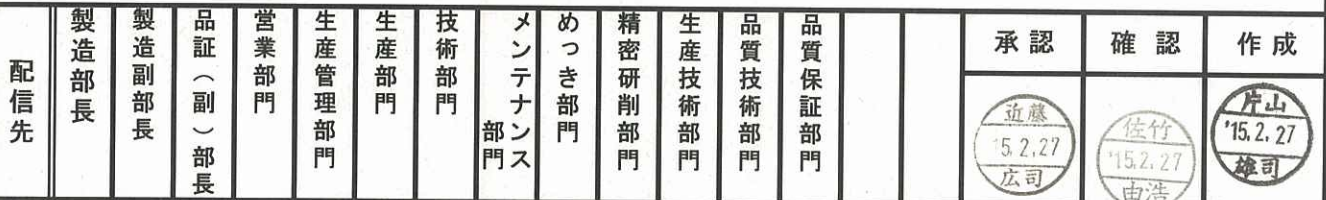 配信先
製造部長
製造副部長
品証（副）部長
営業部門
生産管理部門
生産部門
技術部門
メンテナンス
部門
めっき部門
精密研削部門
生産技術部門
品質技術部門
品質保証部門
承認
確認
作成
近藤
'15.2.27
広司
佐竹
'15.2.27
由浩
片山
'15.2.27
雄司